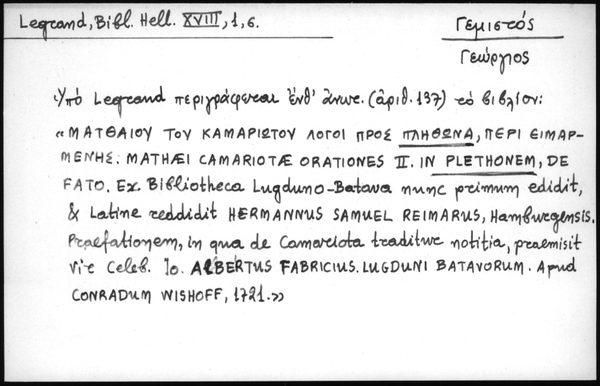 Legrand, Bibl. Hell. XVIII, 1, 6.
Γεμιστός
Γεώργιος
Ὑπό Legrand περιγράφεται ἔνθ' ἄνωτ. (ἀριθ. 137) τό βιβλίον:
«ΜΑΤΘΑΙΟΥ ΤΟΥ ΚΑΜΑΡΙΩΤΟΥ ΛΟΓΟΙ ΠΡΟΣ ΠΛΗΘΩΝΑ, ΠΕΡΙ ΕΙΜΑΡ-
ΜΕΝΗΣ. MATHÆI CAMARIOTÆ ORATIONES II. IN PLETHONEM, DE
FATO. Ex Bibliotheca Lugduno-Batava nunc primum edidit,
& Latine reddidit HERMANNUS SAMUEL REIMARUS, Hamburgensis.
Praefationem, in qua de Camariota traditur notitia, praemisit
vir Celeb. Io. ALBERTUS FABRICIUS. LUGDUNI BATAVORUM. Apud
CONRADUM WISHOFF, 1721.»